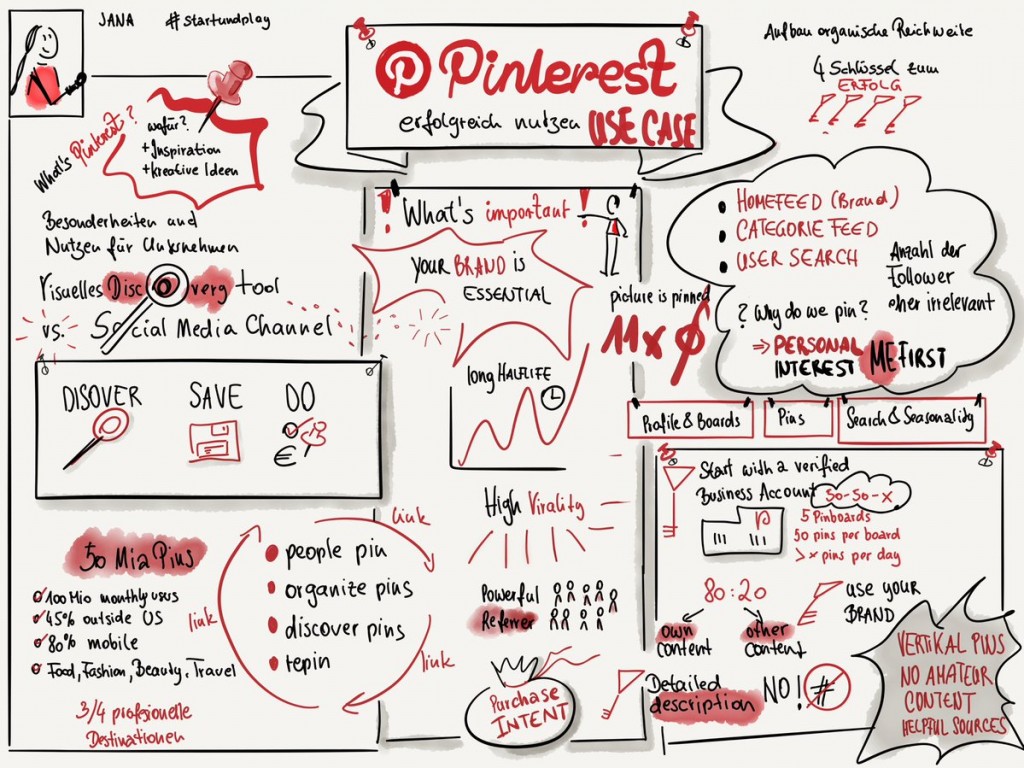 JANA #startundplay
Pinterest
erfolgreich nutzen USE CASE
What's Pinterest?
wofür?
+Inspiration
+Kreative Ideen
Besonderheiten und
Nutzen für Unternehmen
Visuelles Discovery tool
vs. Social Media Channel
DISOVER SAVE DO
€
50 Mia Pins
100 Mio monthly users
45% outside US
80% mobile
Food, Fashion, Beauty, Travel
3/4 profesionelle
Destinationen
link
people pin
organize pins
discover pins
repin
link
link
! What's important!
YOUR BRAND IS
ESSENTIAL
picture is pinned
11x
long HALFLIFE
High Virality
Powerful
Referrer
Purchase
INTENT
Aufbau organische Reichweite
4 Schlüssel zum
ERFOLG
HOMEFEED (Brand)
CATEGORIE FEED
USER SEARCH
Anzahl der
Follower
eher irrelevant
? Why do we pin?
⇒ PERSONAL
INTEREST
ME FIRST
Profile & Boards
Pins
Search & Seasonality
Start with a verified
Business Account
50-50-X
5 Pinboards
50 pins per board
> x pins per day
80:20
own
content
other
content
USE YOUR
BRAND
Detailed
description
NO! #
VERTIKAL PINS
NO AMATEUR
CONTENT
HELPFUL SOURCES